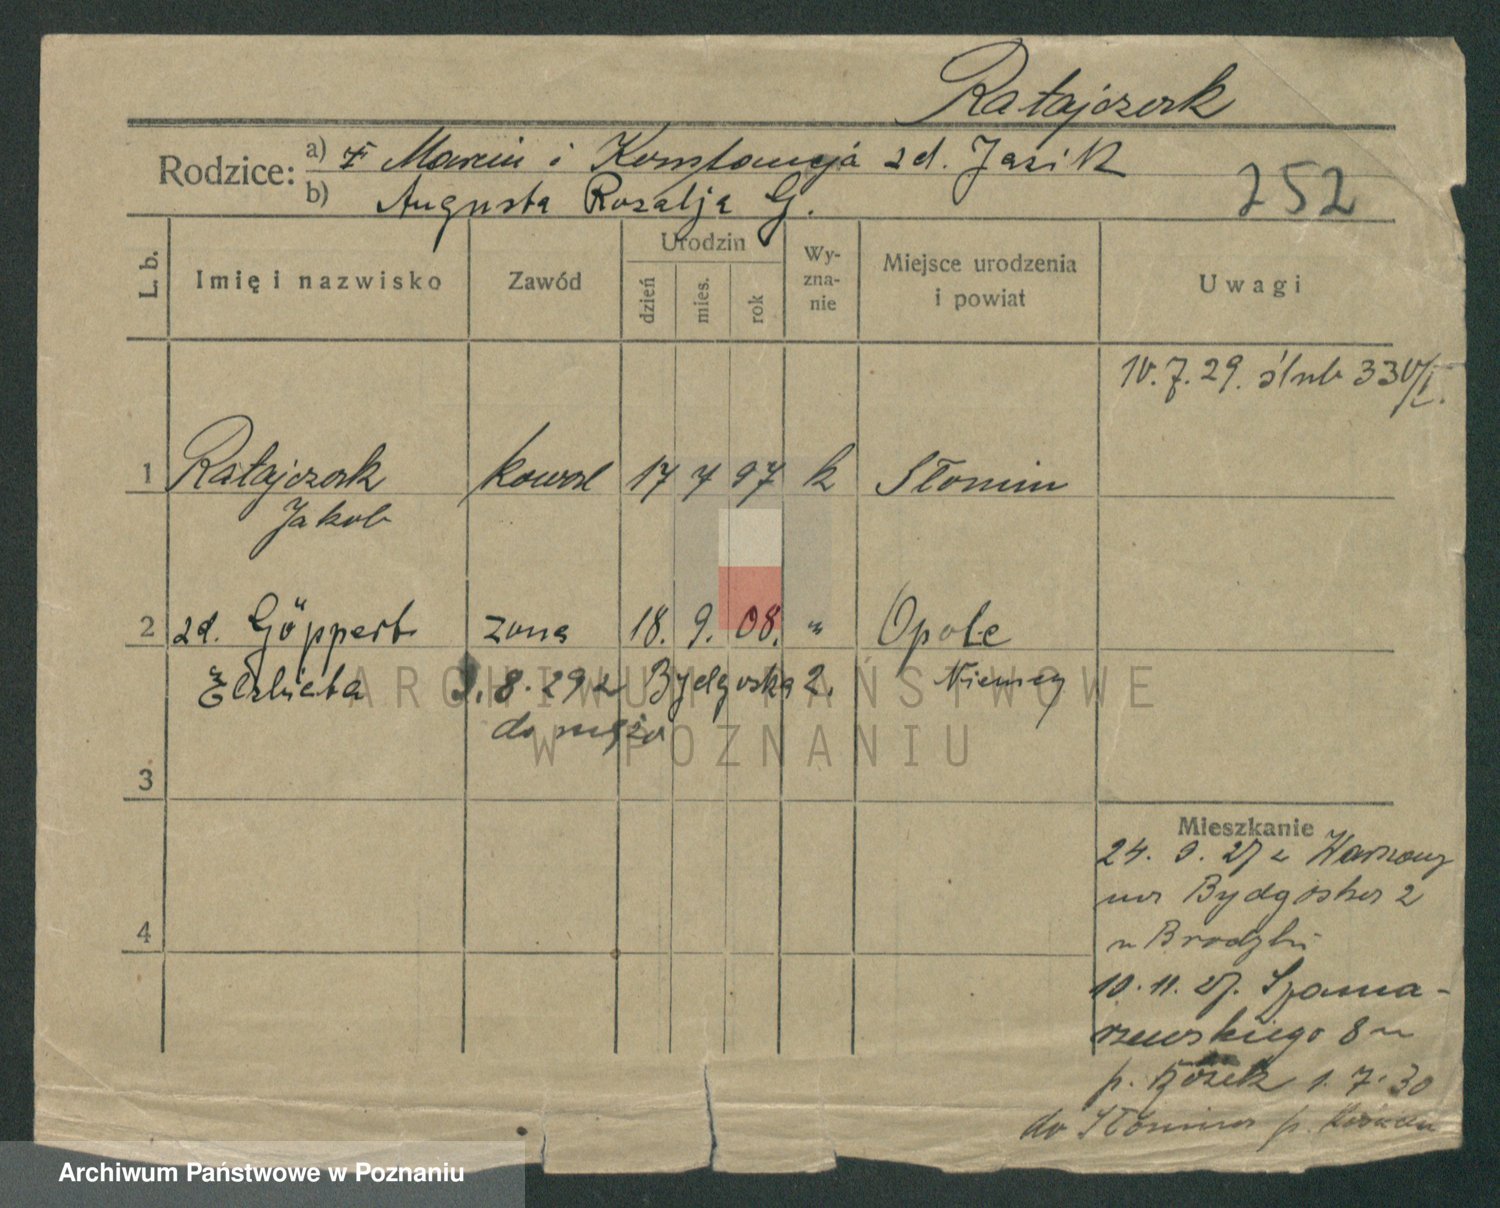 Ratajczak
Rodzice: a) Marcin i Konstancja zd. Jasik
b) Augusta Rozalja G.
252
L. b.
Imię i nazwisko
Zawód
Urodzin
dzień
mies.
rok
Wy-
zna-
nie
Miejsce urodzenia
i powiat
Uwagi
10.7.29. ślub 330/I.
1 Ratajczak kowal 17 7 97 k Słomin
Jakob
2 zd. Göppert żona 18. 9. 08. " Opole
Elżbieta 3. 8. 29 z Bydgoska 2. Niemcy
do męża
3
4
Mieszkanie
24. 9. 27 z Warszawy
na Bydgoska 2
u
10. 11. 27. Szama-
rzewskiego 8 u
p. 1. 7. 30
do Słomina p.
ARCHIWUM PAŃSTWOWE
W POZNANIU
Archiwum Państwowe w Poznaniu